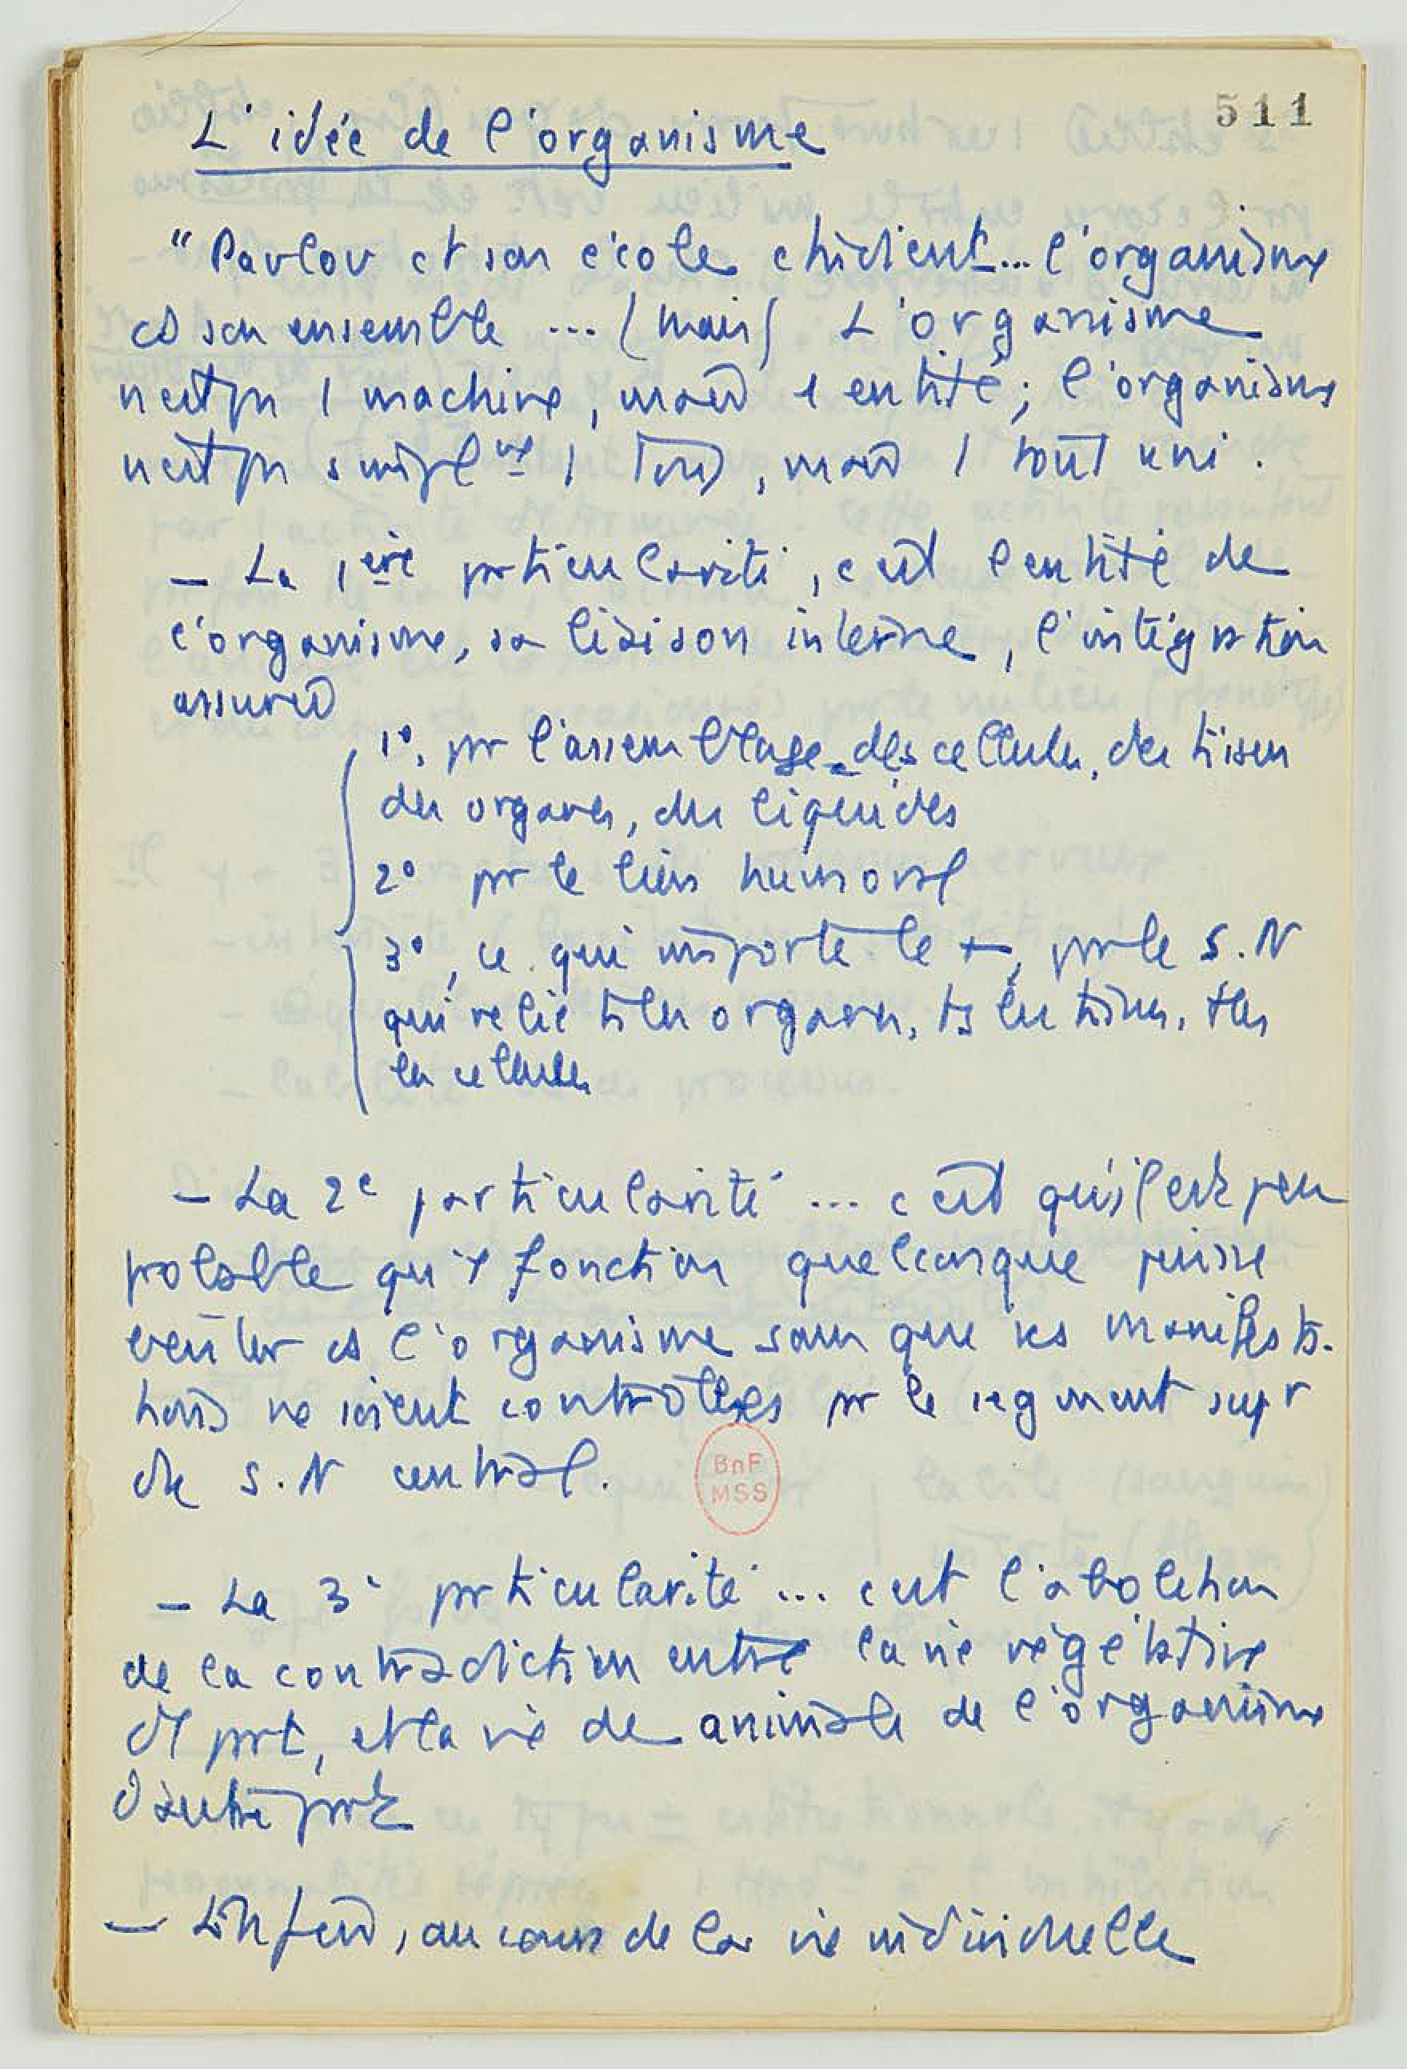 511
L'idée de l'organisme
"Pavlov et son école étudient... l'organisme
ds son ensemble ... (mais) L'organisme
n'est pas 1 machine, mais 1 entité; l'organisme
n'est pas simplmt 1 tout, mais 1 tout uni.
— La 1ère particularité, c'est l'entité de
l'organisme, sa liaison interne, l'intégration
assurée
1°, par l'assemblage des cellules, des tissus
des organes, des liquides
2° par le lien humoral
3°, ce qui importe le +, par le S.N
qui relie ts les organes, ts les tissus, ttes
les cellules
— La 2e particularité ... c'est qu'il est peu
probable qu'1 fonction quelconque puisse
ds l'organisme sans que ses manifesta-
tions ne soient contrôlées par le segment supr
du S.N central.
BnF
MSS
— La 3e particularité ... c'est l'abolition
de la contradiction entre la vie végétative
d'1 part, et la vie de animale de l'organisme
d'autre part
— au cours de la vie individuelle